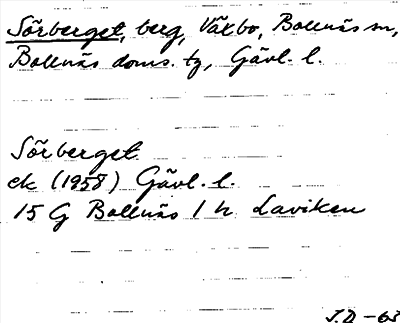 Sörberget, berg, Växbo, Bollnäs sn,
Bollnäs doms. tg, Gävl. l.
Sörberget
ek (1958) Gävl. l.
15 G Bollnäs 1 h Laviken
J.D -63